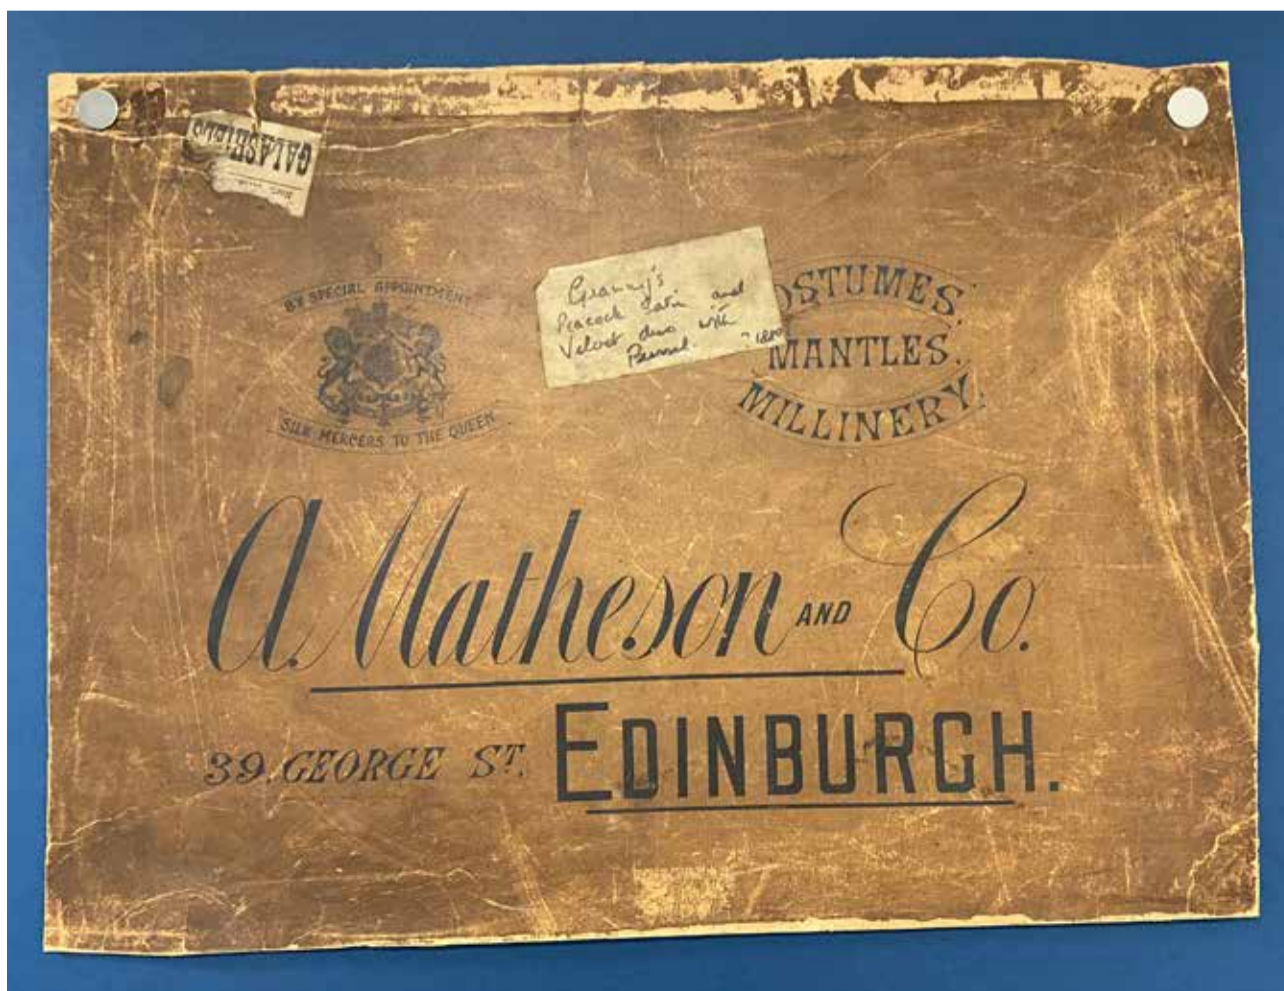 GALASHIELS
BY SPECIAL APPOINTMENT
SILK MERCERS TO THE QUEEN
Granny's
Peacock Satin and
Velvet dress with
? 1880
OSTUMES.
MANTLES.
MILLINERY.
A. Matheson AND Co.
39. GEORGE ST. EDINBURGH.